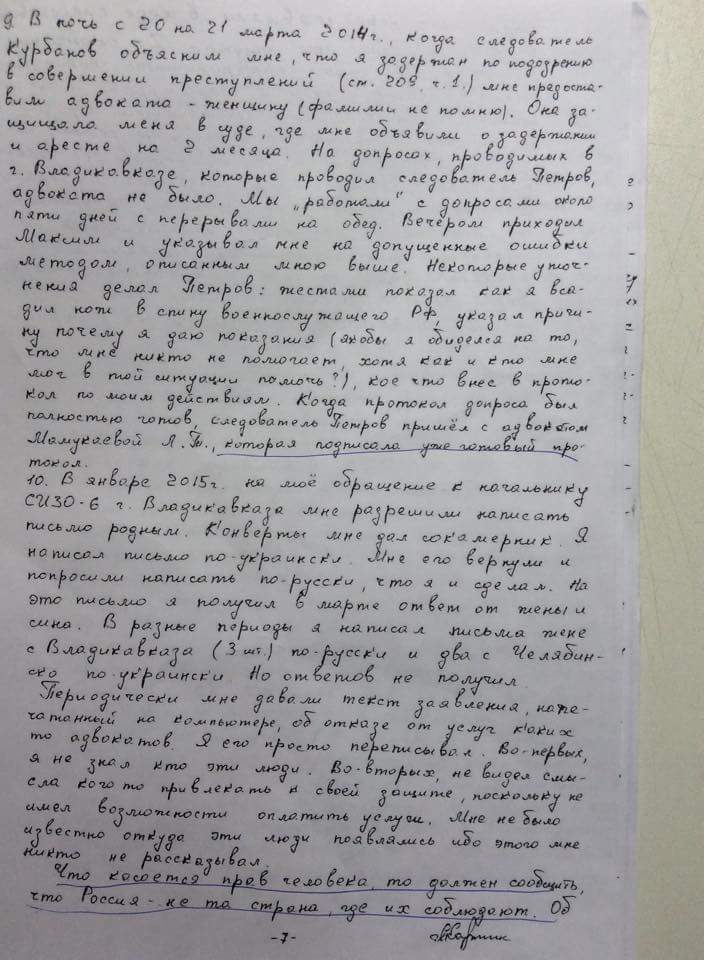 9. В ночь с 20 на 21 марта 2014г., когда следователь
Курбанов объяснил мне, что я задержан по подозрению
в совершении преступлений (ст. 209, ч.1.) мне предоста-
вили адвоката - женщину (фамилии не помню). Она за-
щищала меня в суде, где мне объявили о задержании
и аресте на 2 месяца. На допросах, проводимых в
г. Владикавказе, которые проводил следователь Петров,
адвоката не было. Мы „работали" с допросами около
пяти дней с перерывами на обед. Вечером приходил
Максим и указывал мне на допущенные ошибки
методом, описанным мною выше. Некоторые уточ-
нения делал Петров: жестами показал как я вса-
дил нож в спину военнослужащего РФ, указал причи-
ну почему я даю показания (якобы я обиделся на то,
что мне никто не помогает, хотя как и кто мне
мог в той ситуации помочь?), кое что внес в прото-
кол по моим действиям. Когда протокол допроса был
полностью готов, следователь Петров пришёл с адвокатом
Мамукаевой Л.Т., которая подписала уже готовый про-
токол.
10. В январе 2015г. на моё обращение к начальнику
СИЗО-6 г. Владикавказа мне разрешили написать
письмо родным. Конверты мне дал сокамерник. Я
написал письмо по-украински. Мне его вернули и
попросили написать по-русски, что я и сделал. На
это письмо я получил в марте ответ от жены и
сына. В разные периоды я написал письма жене
с Владикавказа (3 шт.) по-русски и два с Челябин-
ска по-украински. Но ответов не получил.
Периодически мне давали текст заявления, напе-
чатанный на компьютере, об отказе от услуг каких
то адвокатов. Я его просто переписывал. Во-первых,
я не знал кто эти люди. Во-вторых, не видел смы-
сла кого то привлекать к своей защите, поскольку не
имел возможности оплатить услуги. Мне не было
известно откуда эти люди появлялись ибо этого мне
никто не рассказывал.
Что касается прав человека, то должен сообщить,
что Россия - не та страна, где их соблюдают. Об
-7-